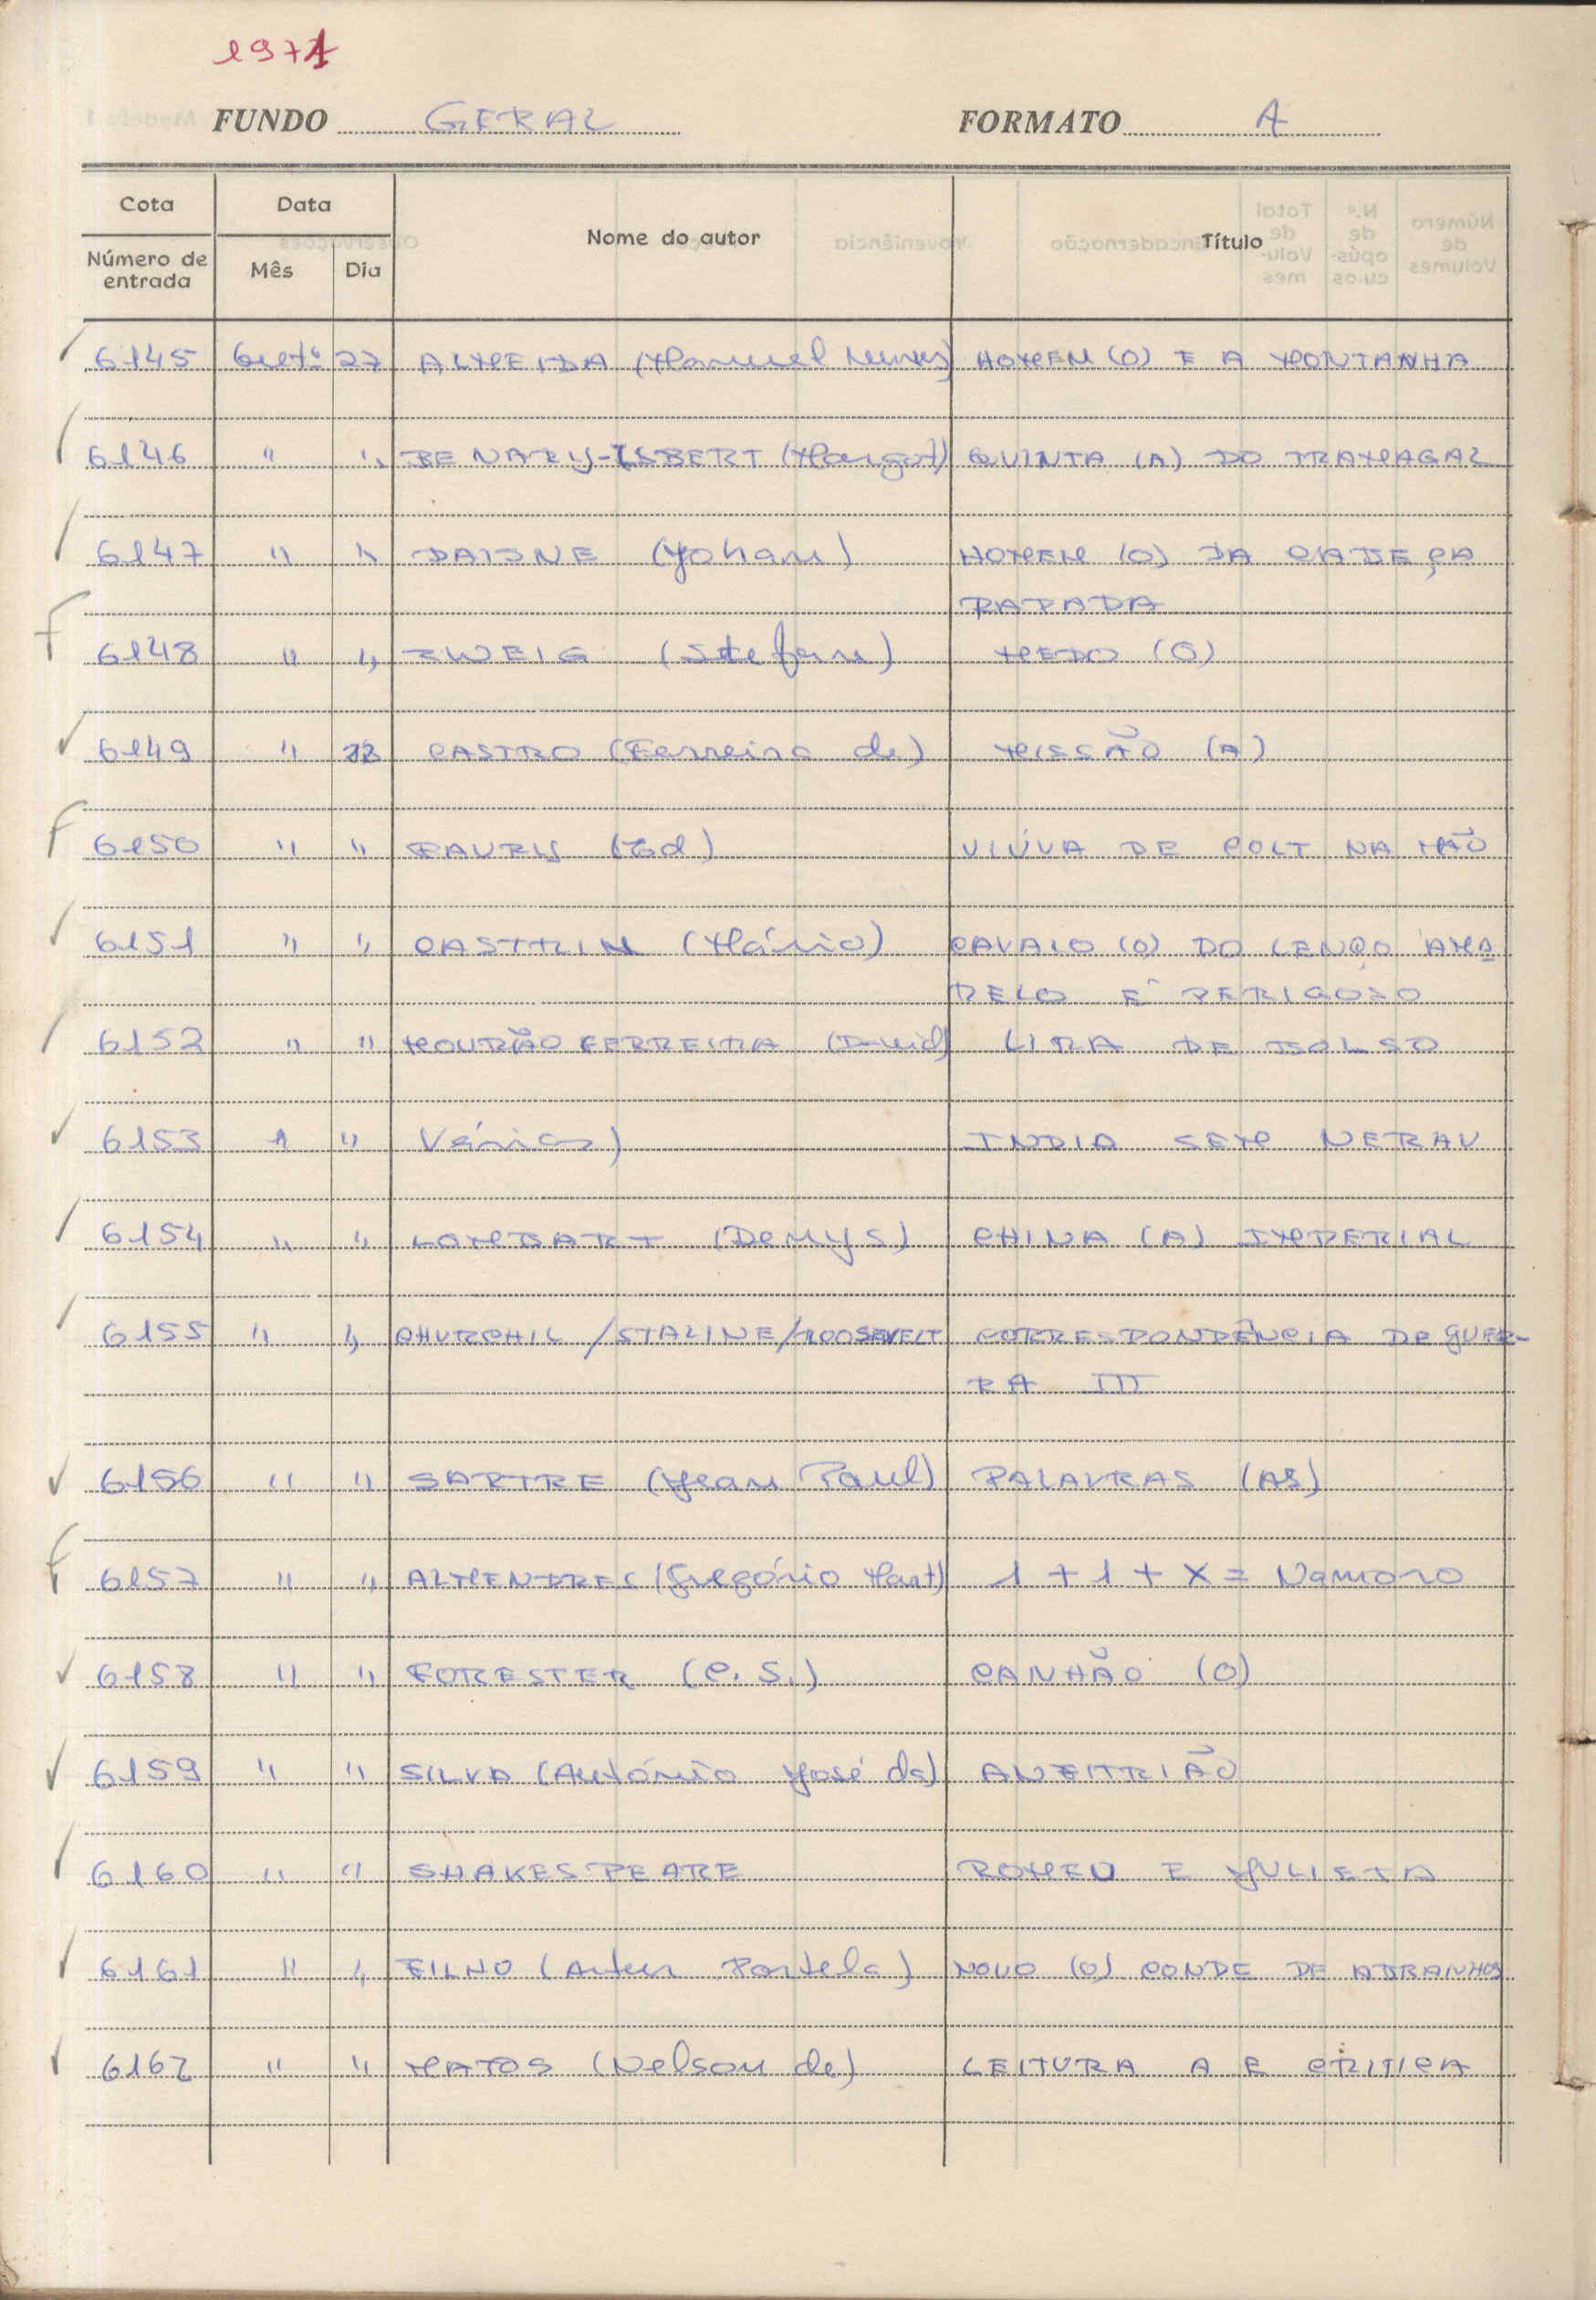 1971
FUNDO GERAL FORMATO A
Cota Data Nome do autor Título
Número de entrada Mês Dia
6145 Outº 27 ALMEIDA (Manuel Nunes) HOMEM (O) E A MONTANHA
6146 " " BENARY-ISBERT (Margot) QUINTA (A) DO TRAMAGAL
6147 " " DAISNE (Johan) HOMEM (O) DA CABEÇA
RAPADA
6148 " " ZWEIG (Stefan) MEDO (O)
6149 " 28 CASTRO (Ferreira de) MISSÃO (A)
6150 " " (Ed) VIÚVA DE COLT NA MÃO
6151 " " CASTRIM (Mário) CAVALO (O) DO LENÇO AMA
RELO É PERIGOSO
6152 " " MOURÃO FERREIRA (David) LIRA DE BOLSO
6153 " " Vários) INDIA SEM NERAU
6154 " " LOMBART (Denys) CHINA (A) IMPERIAL
6155 " " CHURCHIL / STALINE / ROOSEVELT CORRESPONDÊNCIA DE GUER-
RA III
6156 " " SARTRE (Jean Paul) PALAVRAS (AS)
6157 " " (Gregório Mart) 1 + 1 + X = Namoro
6158 " " FORESTER (C. S.) CANHÃO (O)
6159 " " SILVA (António José da) ANFITRIÃO
6160 " " SHAKESPEARE ROMEU E JULIETA
6161 " " FILHO (Artur Portela) NOVO (O) CONDE DE ABRANHOS
6162 " " MATOS (Nelson de) LEITURA A E CRITICA